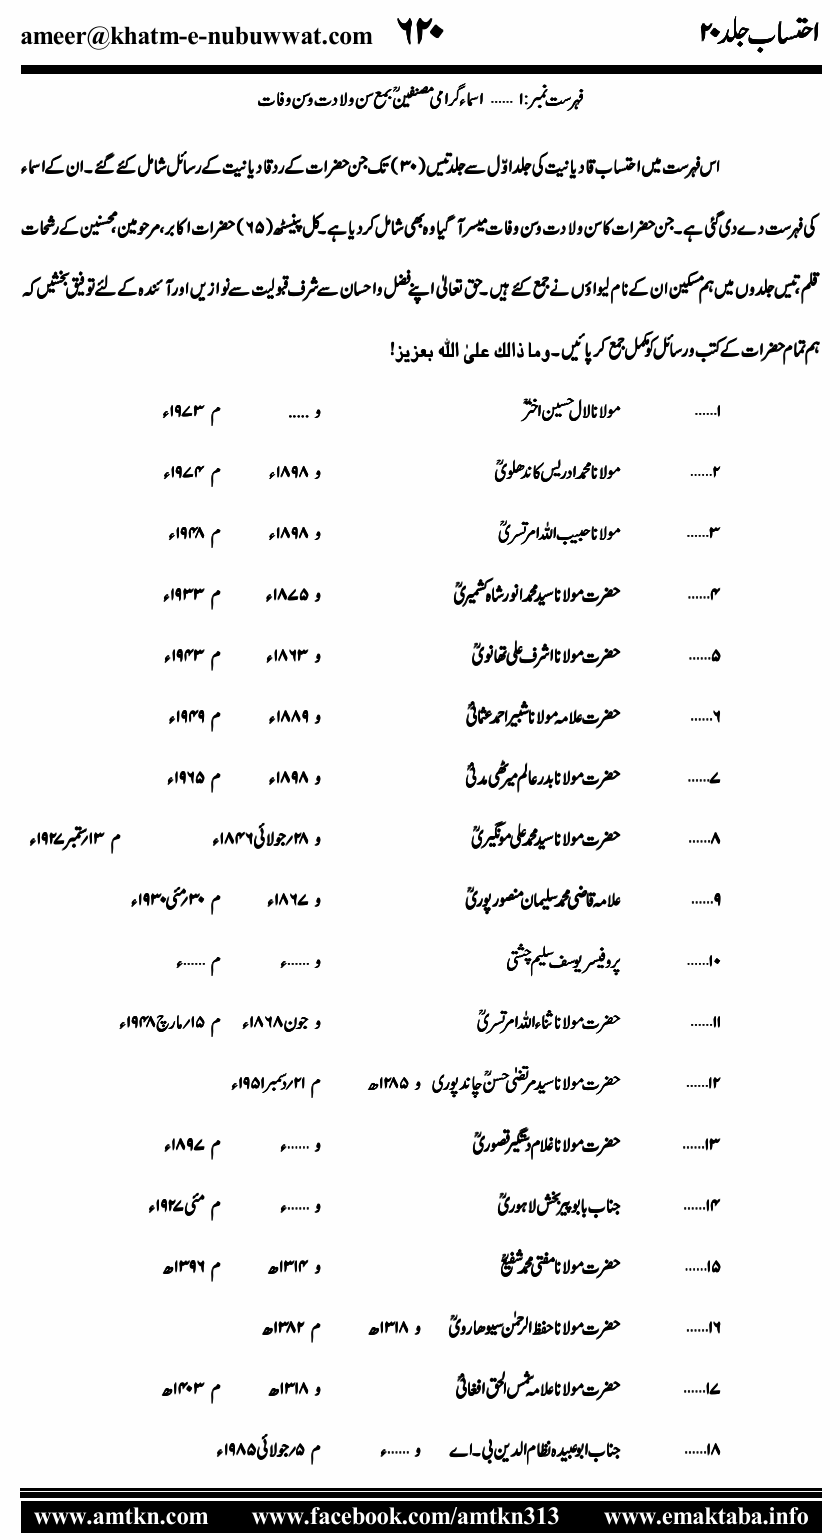 احتساب جلد۲۰ ۶۲۰ ameer@khatm-e-nubuwwat.com
فہرست نمبر:۱ ...... اسماء گرامی مصنفینؒ بمع سن ولادت وسن وفات
اس فہرست میں احتساب قادیانیت کی جلد اوّل سے جلد تیس (۳۰) تک جن حضرات کے رد قادیانیت کے رسائل شامل کئے گئے۔ ان کے اسماء
کی فہرست دے دی گئی ہے۔ جن حضرات کا سن ولادت وسن وفات میسر آ گیا وہ بھی شامل کر دیا ہے۔ کل پنیسٹھ (۶۵) حضرات اکابر، مرحومین، محسنین کے رشحات
قلم، تیس جلدوں میں ہم مسکین ان کے نام لیواؤں نے جمع کئے ہیں۔ حق تعالیٰ اپنے فضل واحسان سے شرف قبولیت سے نوازیں اور آئندہ کے لئے توفیق بخشیں کہ
ہم تمام حضرات کے کتب ورسائل کو مکمل جمع کر پائیں۔ وما ذالك علیٰ الله بعزیز!
۱...... مولانا لال حسین اخترؒ و ..... م ۱۹۷۳ء
۲...... مولانا محمد ادریس کاندھلویؒ و ۱۸۹۸ء م ۱۹۷۴ء
۳...... مولانا حبیب اللہ امرتسریؒ و ۱۸۹۸ء م ۱۹۴۸ء
۴...... حضرت مولانا سید محمد انور شاہ کشمیریؒ و ۱۸۷۵ء م ۱۹۳۳ء
۵...... حضرت مولانا اشرف علی تھانویؒ و ۱۸۶۳ء م ۱۹۴۳ء
۶...... حضرت علامہ مولانا شبیر احمد عثمانیؒ و ۱۸۸۹ء م ۱۹۴۹ء
۷...... حضرت مولانا بدر عالم میرٹھی مدنیؒ و ۱۸۹۸ء م ۱۹۶۵ء
۸...... حضرت مولانا سید محمد علی مونگیریؒ و ۲۸؍جولائی ۱۸۴۶ء م ۱۳؍ستمبر ۱۹۲۷ء
۹...... علامہ قاضی محمد سلیمان منصور پوریؒ و ۱۸۶۷ء م ۳۰؍مئی ۱۹۳۰ء
۱۰...... پروفیسر یوسف سلیم چشتی و ......ء م ......ء
۱۱...... حضرت مولانا ثناء اللہ امرتسریؒ و جون ۱۸۶۸ء م ۱۵؍مارچ ۱۹۴۸ء
۱۲...... حضرت مولانا سید مرتضیٰ حسنؒ چاند پوری و ۱۲۸۵ھ م ۲۱؍دسمبر ۱۹۵۱ء
۱۳...... حضرت مولانا غلام دستگیر قصوریؒ و ......ء م ۱۸۹۷ء
۱۴...... جناب بابو پیر بخش لاہوریؒ و ......ء م مئی ۱۹۲۷ء
۱۵...... حضرت مولانا مفتی محمد شفیعؒ و ۱۳۱۴ھ م ۱۳۹۶ھ
۱۶...... حضرت مولانا حفظ الرحمٰن سیوھارویؒ و ۱۳۱۸ھ م ۱۳۸۲ھ
۱۷...... حضرت مولانا علامہ شمس الحق افغانیؒ و ۱۳۱۸ھ م ۱۴۰۳ھ
۱۸...... جناب ابوعبیدہ نظام الدین بی۔اے و ......ء م ۵؍جولائی ۱۹۸۵ء
www.amtkn.com www.facebook.com/amtkn313 www.emaktaba.info